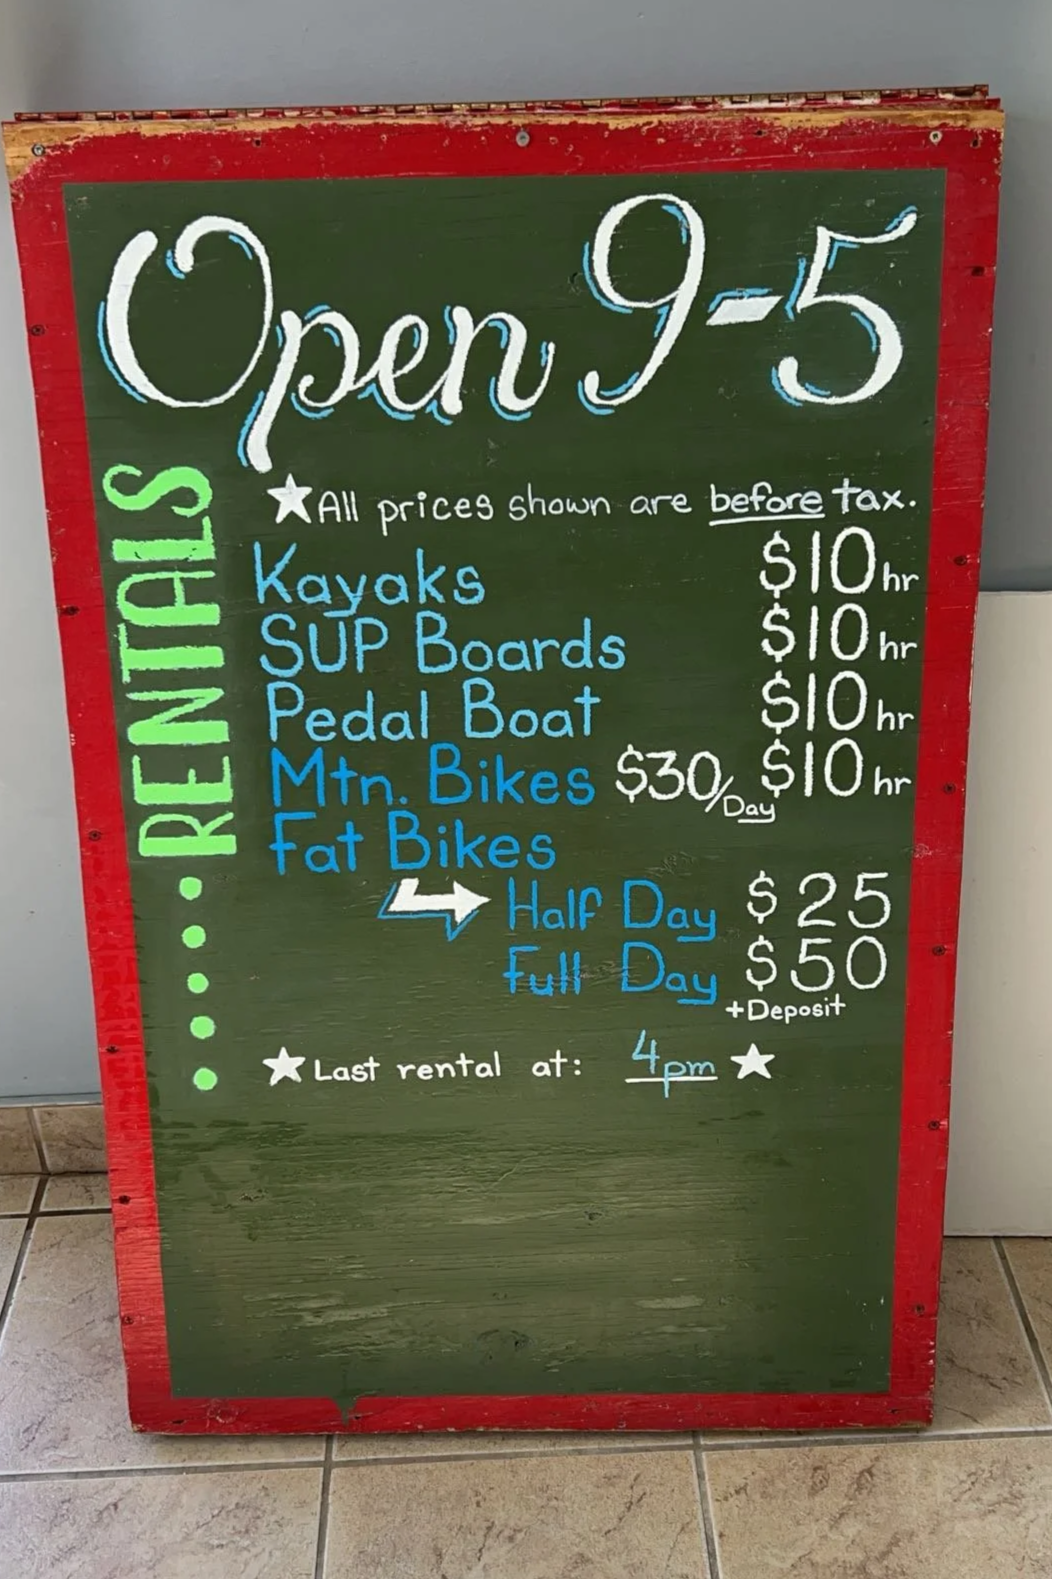 Open 9-5
RENTALS
★All prices shown are before tax.
Kayaks $10 hr
SUP Boards $10 hr
Pedal Boat $10 hr
Mtn. Bikes $30/Day $10 hr
Fat Bikes
Half Day $25
Full Day $50
+Deposit
★Last rental at: 4pm★